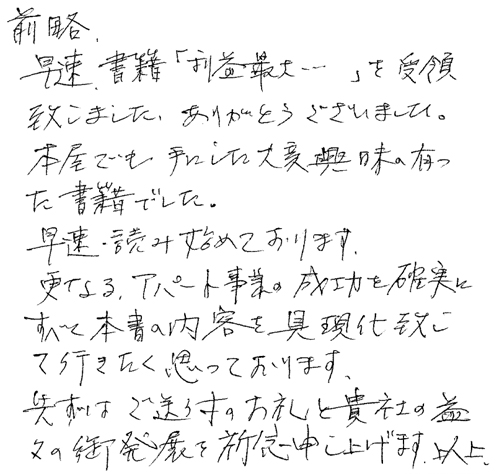 前略、
早速、書籍「利益最大…」を受領
致しました、ありがとうございました。
本屋でも手にした大変興味の有っ
た書籍でした。
早速、読み始めております。
更なる、アパート事業の成功を確実に
すべく本書の内容を具現化致し
て行きたく思っております、
先ずはご送付のお礼と貴社の益
々の御発展を祈念申し上げます。以上